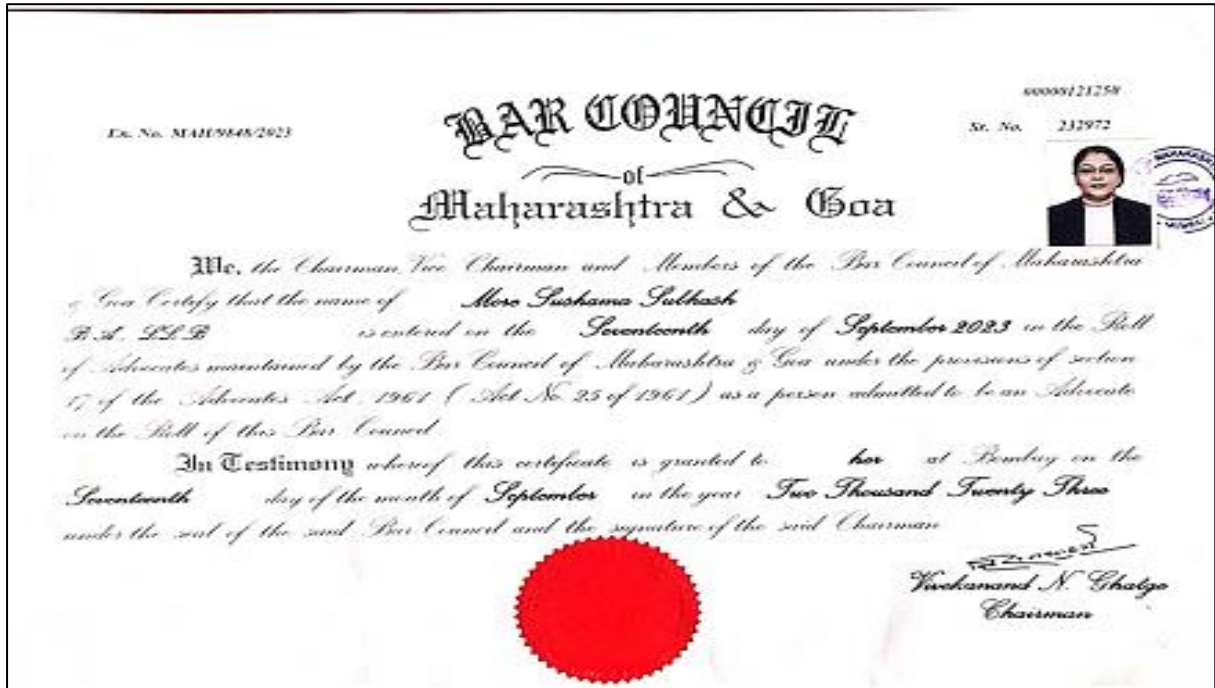 00000121250
En. No. MAH/9848/2023
BAR COUNCIL
Sr. No. 232972
of
Maharashtra & Goa
We, the Chairman, Vice Chairman and Members of the Bar Council of Maharashtra
& Goa Certify that the name of More Sushama Subhash
B.A. LL.B is entered on the Seventeenth day of September 2023 in the Roll
of Advocates maintained by the Bar Council of Maharashtra & Goa under the provisions of section
17 of the Advocates Act, 1961 (Act No. 25 of 1961) as a person admitted to be an Advocate
on the Roll of this Bar Council.
In Testimony whereof this certificate is granted to her at Bombay on the
Seventeenth day of the month of September in the year Two Thousand Twenty Three
under the seal of the said Bar Council and the signature of the said Chairman
Vivekanand N. Ghatge
Chairman